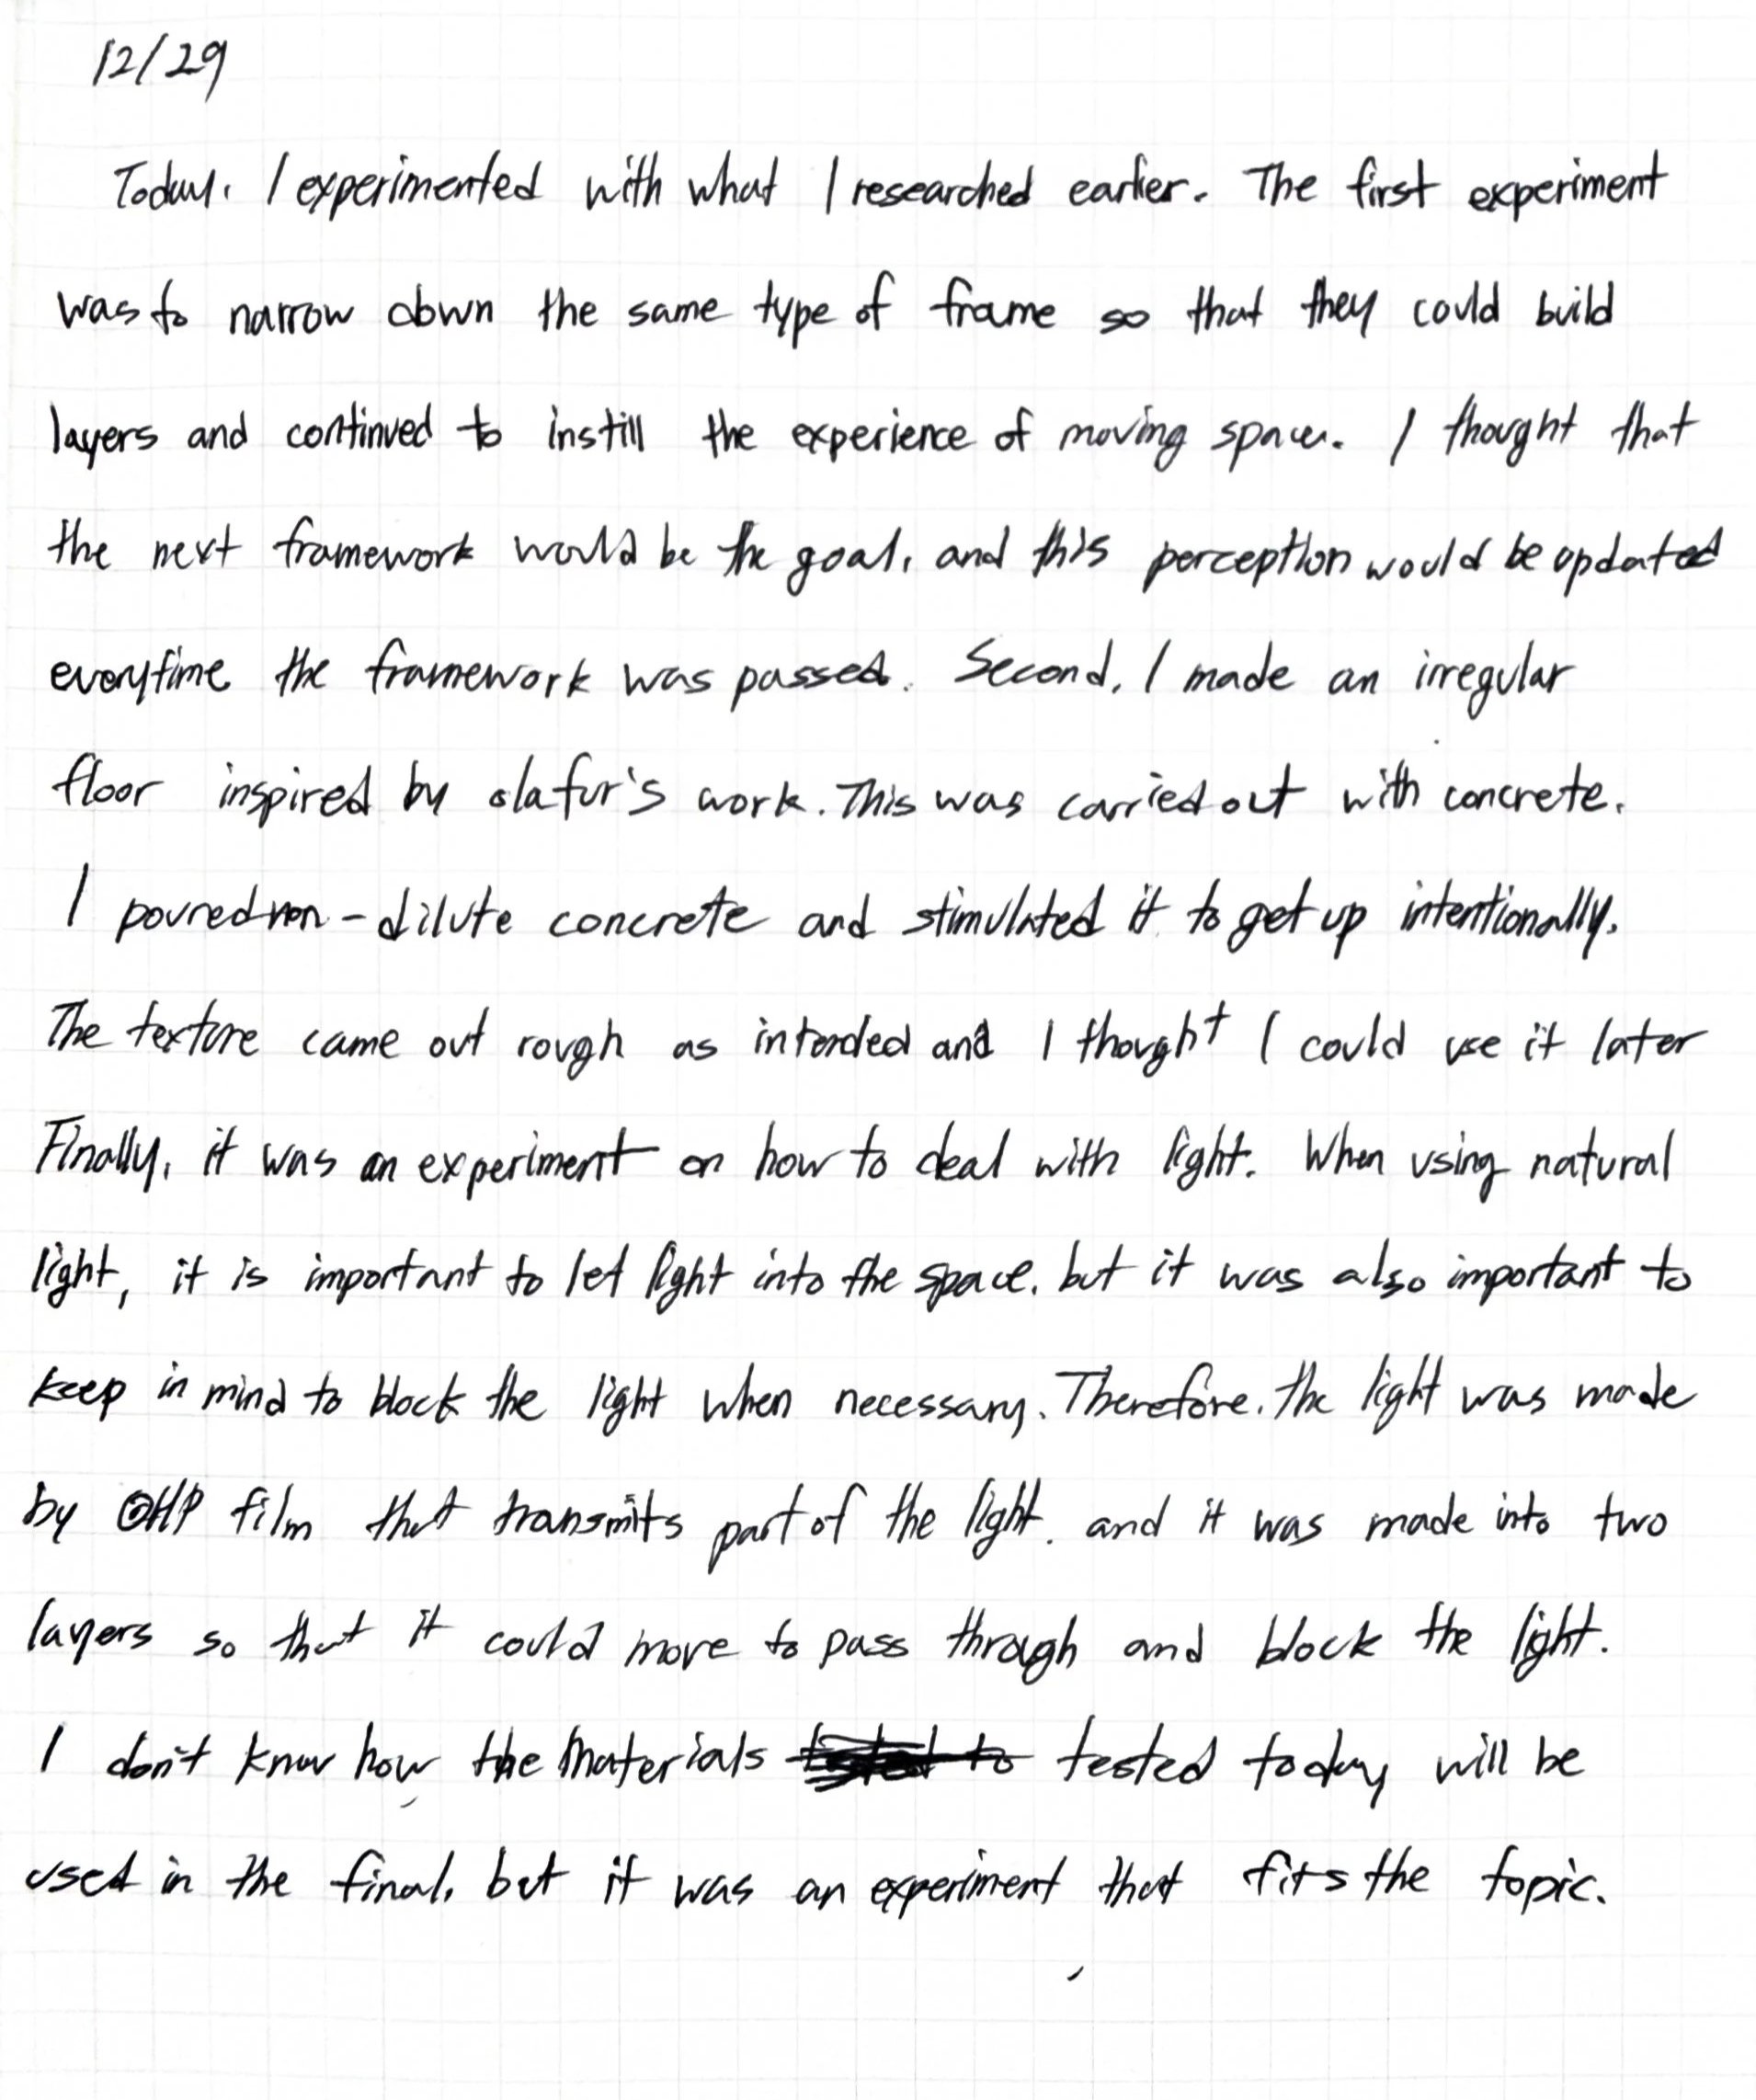 12/29
Today, I experimented with what I researched earlier. The first experiment
was to narrow down the same type of frame so that they could build
layers and continued to instill the experience of moving space. I thought that
the next framework would be the goal, and this perception would be updated
everytime the framework was passed. Second, I made an irregular
floor inspired by olafur's work. This was carried out with concrete.
I poured non-dilute concrete and stimulated it to get up intentionally.
The texture came out rough as intended and I thought I could use it later
Finally, it was an experiment on how to deal with light. When using natural
light, it is important to let light into the space, but it was also important to
keep in mind to block the light when necessary. Therefore, the light was made
by OHP film that transmits part of the light. and it was made into two
layers so that it could move to pass through and block the light.
I don't know how the materials tested today will be
used in the final, but it was an experiment that fits the topic.